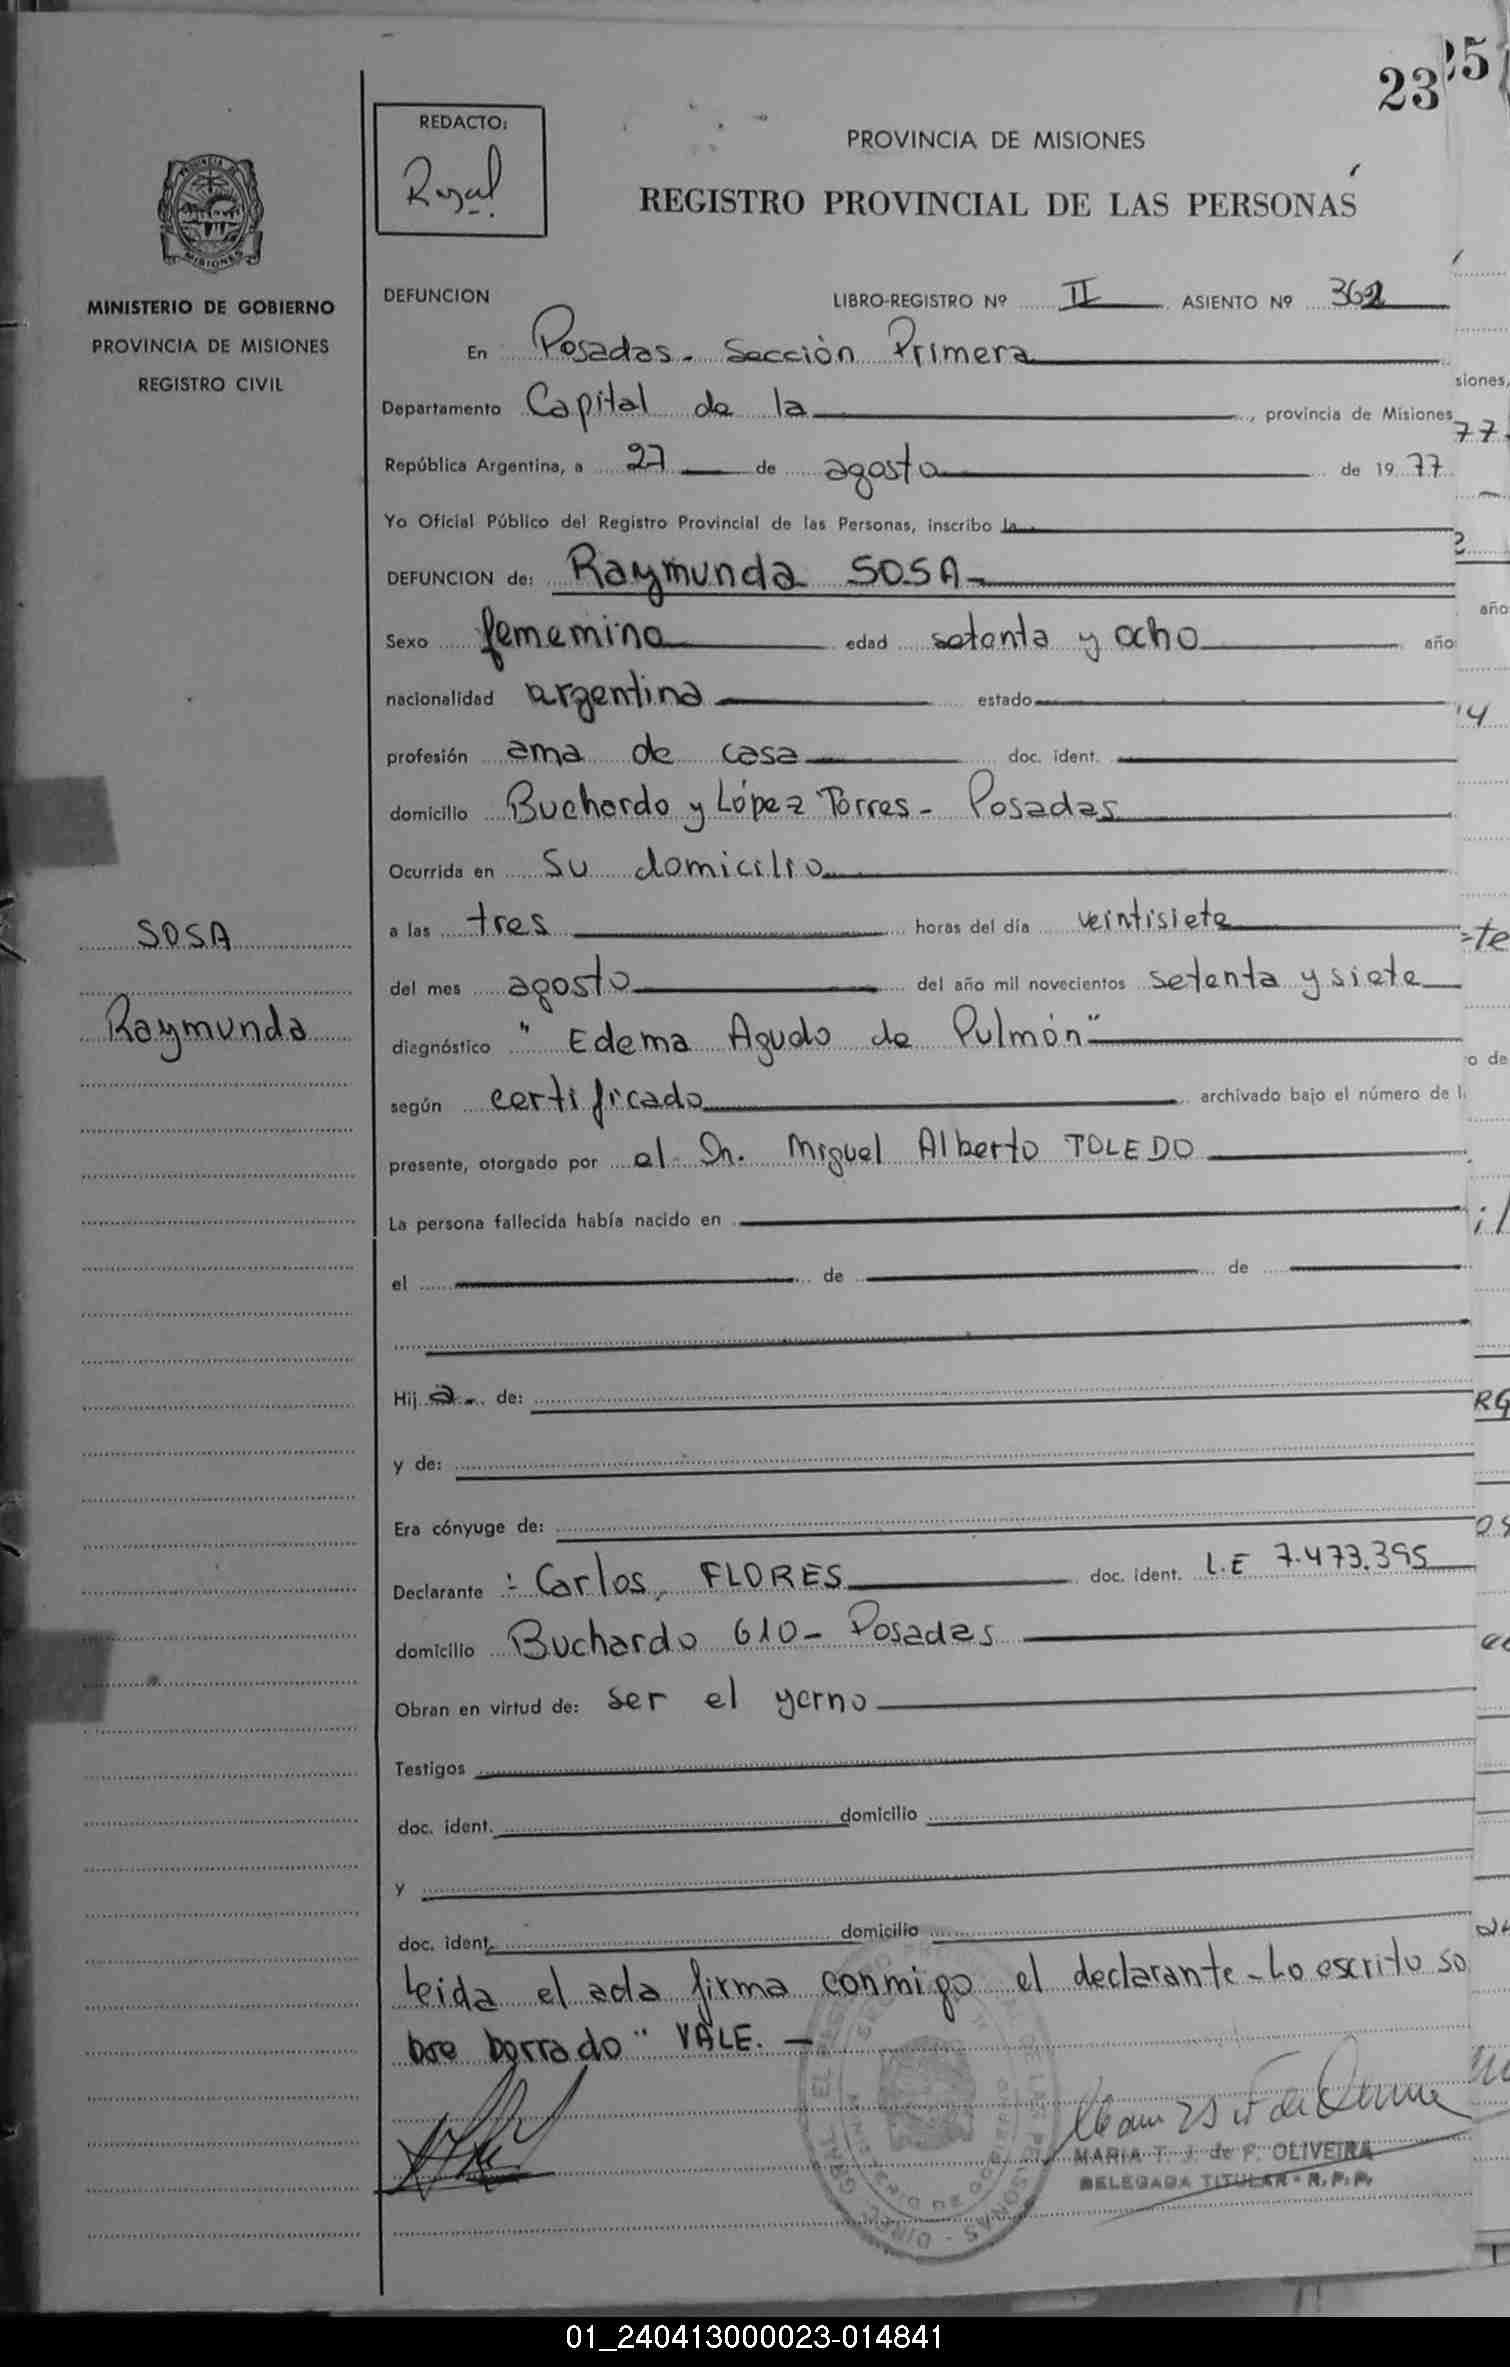 23
25
REDACTO:
PROVINCIA DE MISIONES
REGISTRO PROVINCIAL DE LAS PERSONAS
MINISTERIO DE GOBIERNO
PROVINCIA DE MISIONES
REGISTRO CIVIL
DEFUNCION
LIBRO-REGISTRO Nº II ASIENTO Nº
En Posadas - Sección Primera
Departamento Capital de la, provincia de Misiones
República Argentina, a 27 de agosto de 1977
Yo Oficial Público del Registro Provincial de las Personas, inscribo la
DEFUNCION de: Raymunda SOSA-
Sexo fememino edad setenta y ocho año
nacionalidad argentina estado
profesión ama de casa doc. ident.
domicilio Buchardo y López Torres - Posadas
Ocurrida en su domicilio
a las tres horas del día veintisiete
del mes agosto del año mil novecientos setenta y siete
diagnóstico "Edema Agudo de Pulmón"
según certificado archivado bajo el número de l
presente, otorgado por el Dr. Miguel Alberto TOLEDO
La persona fallecida había nacido en
el de de
Hija de:
y de:
Era cónyuge de:
Declarante : Carlos, FLORES doc. ident. L.E 7.473.395
domicilio Buchardo 610 - Posadas
Obran en virtud de: ser el yerno
Testigos
doc. ident. domicilio
y
doc. ident. domicilio
Leida el acta firma conmigo el declarante - Lo escrito so
bre borrado" VALE. -
MARIA T. J. de F. OLIVEIRA
DELEGADA TITULAR - R.P.P.
SOSA
Raymunda
siones,
77.
año
14
=te
o de
RG
01_240413000023-014841